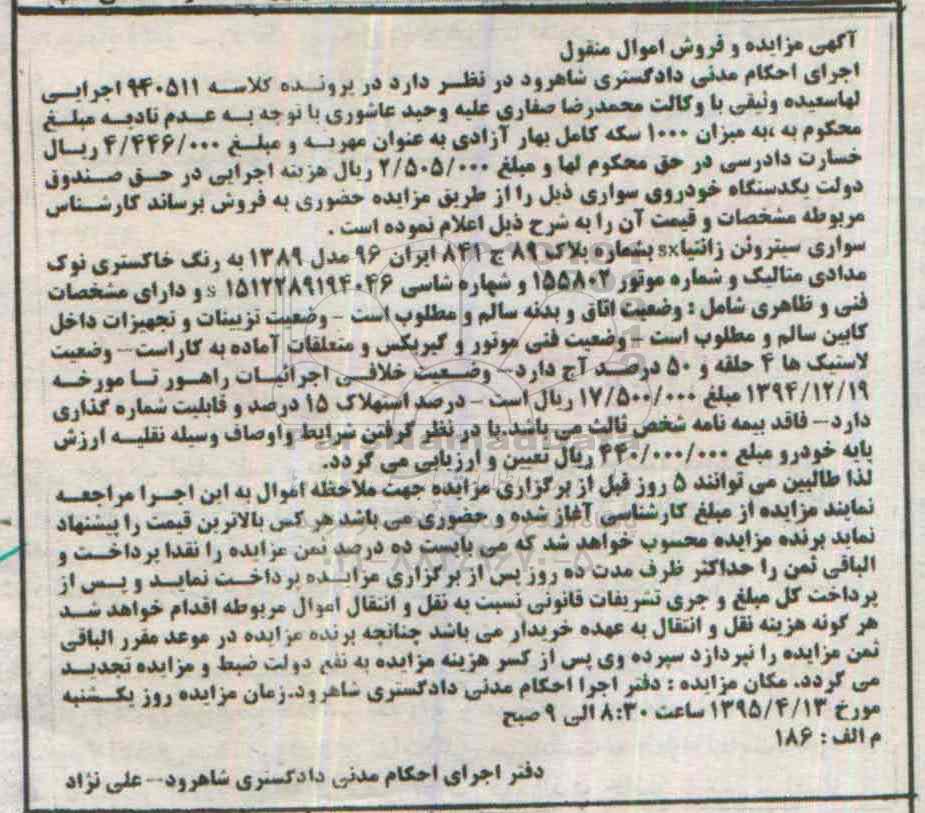 آگهی مزایده و فروش اموال منقول
اجرای احکام مدنی دادگستری شاهرود در نظر دارد در پرونده کلاسه ۹۴۰۵۱۱ اجرایی
لهاسعیده وثیقی با وکالت محمدرضا صفاری علیه وحید عاشوری با توجه به عدم تادیه مبلغ
محکوم به ،به میزان ۱۰۰۰ سکه کامل بهار آزادی به عنوان مهریه و مبلغ ۴/۴۴۶/۰۰۰ ریال
خسارت دادرسی در حق محکوم لها و مبلغ ۲/۵۰۵/۰۰۰ ریال هزینه اجرایی در حق صندوق
دولت یکدستگاه خودروی سواری ذیل را از طریق مزایده حضوری به فروش برساند کارشناس
مربوطه مشخصات و قیمت آن را به شرح ذیل اعلام نموده است .
سواری سیتروئن زانتیاsx بشماره پلاک ۸۹ ج ۸۴۱ ایران ۹۶ مدل ۱۳۸۹ به رنگ خاکستری نوک
مدادی متالیک و شماره موتور ۱۵۵۸۰۲ و شهاره شاسی s ۱۵۱۲۲۸۹۱۹۴۰۴۶ و دارای مشخصات
فنی و ظاهری شامل : وضعیت اتاق و بدنه سالم و مطلوب است – وضعیت تزیینات و تجهیزات داخل
کابین سالم و مطلوب است – وضعیت فنی موتور و گیربکس و متعلقات آماده به کاراست– وضعیت
لاستیک ها ۴ حلقه و ۵۰ درصد آج دارد– وضعیت خلافی اجرائیات راهور تا مورخه
۱۳۹۴/۱۲/۱۹ مبلغ ۱۷/۵۰۰/۰۰۰ ریال است – درصد استهلاک ۱۵ درصد و قابلیت شماره گذاری
دارد– فاقد بیمه نامه شخص ثالث می باشد.با در نظر گرفتن شرایط واوصاف وسیله نقلیه ارزش
پایه خودرو مبلغ ۴۴۰/۰۰۰/۰۰۰ ریال تعیین و ارزیابی می گردد.
لذا طالبین می توانند ۵ روز قبل از برگزاری مزایده جهت ملاحظه اموال به این اجرا مراجعه
نمایند مزایده از مبلغ کارشناسی آغاز شده و حضوری می باشد هر کس بالاترین قیمت را پیشنهاد
نماید برنده مزایده محسوب خواهد شد که می بایست ده درصد ثمن مزایده را نقدا پرداخت و
الباقی ثمن را حداکثر ظرف مدت ده روز پس از برگزاری مزایده پرداخت نماید و پس از
پرداخت کل مبلغ و جری تشریفات قانونی نسبت به نقل و انتقال اموال مربوطه اقدام خواهد شد
هر گونه هزینه نقل و انتقال به عهده خریدار می باشد چنانچه برنده مزایده در موعد مقرر الباقی
ثمن مزایده را نپردازد سپرده وی پس از کسر هزینه مزایده به نفع دولت ضبط و مزایده تجدید
می گردد. مکان مزایده : دفتر اجرا احکام مدنی دادگستری شاهرود.زمان مزایده روز یکشنبه
مورخ ۱۳۹۵/۴/۱۳ ساعت ۸:۳۰ الی ۹ صبح
م الف : ۱۸۶
دفتر اجرای احکام مدنی دادگستری شاهرود– علی نژاد